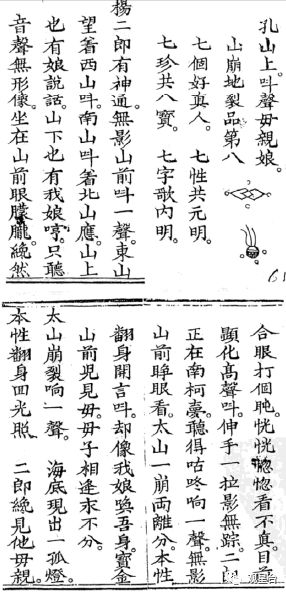 孔山上。叫聲母親娘。
山崩地裂品第八
七個好真人。七性共元明。
七珍共八寶 七字歌內明。
楊二郎有神通。無影山前叫一聲。東山
望着西山叫。南山叫着北山應。山上
也有娘說話。山下也有我娘哼。只聽
音聲無形像。坐在山前眼朦朧。纔然
合眼打個盹。恍恍惚惚看不真。目連
顯化高聲叫。伸手一拉影無踪。二郎
正在南柯臺。聽得咕咚响一聲。無影
山前睜眼看。太山一崩両離分。本性
翻身開言叫。却像我娘喚吾身。寶金
山前児見毋。毋子相逢永不分。
太山崩裂响一聲。 海底現出一孤燈。
本性翻身回光照 二郎纔見他毋親